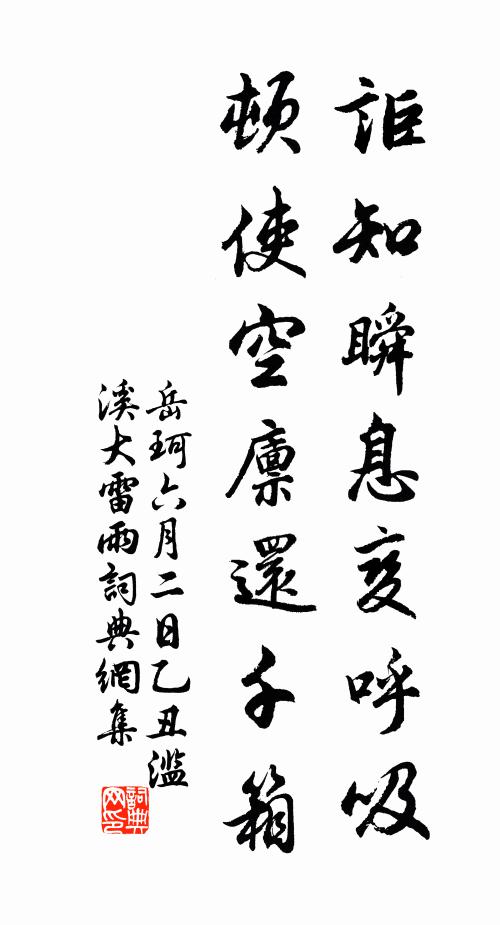 詎知瞬息变呼吸
頓使空廪還千箱
岳珂六月二日乙丑滥
溪大雷雨詞典網集
詞典
网印